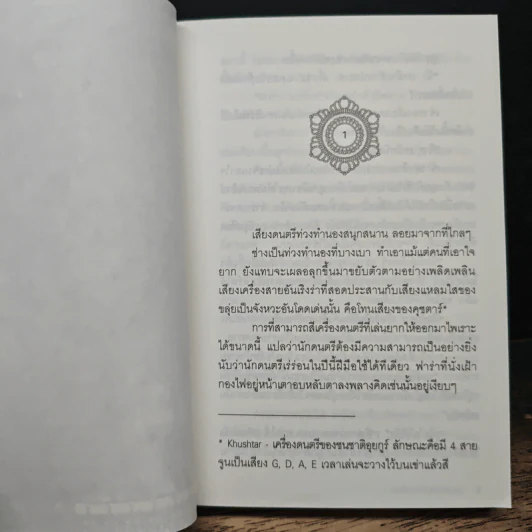 1
เสียงดนตรีท่วงทำนองสนุกสนาน ลอยมาจากที่ไกลๆ
ช่างเป็นท่วงทำนองที่บางเบา ทำเอาแม้แต่คนที่เอาใจ
ยาก ยังแทบจะเผลอลุกขึ้นมาขยับตัวตามอย่างเพลิดเพลิน
เสียงเครื่องสายอันเริงร่าที่สอดประสานกับเสียงแหลมใสของ
ขลุ่ยเป็นจังหวะอันโดดเด่นนั้น คือโทนเสียงของคุชตาร์*
การที่สามารถสีเครื่องดนตรีที่เล่นยากให้ออกมาไพเราะ
ได้ขนาดนี้ แปลว่านักดนตรีต้องมีความสามารถเป็นอย่างยิ่ง
นับว่านักดนตรีเร่ร่อนในปีนี้ฝีมือใช้ได้ทีเดียว ฟาร่าที่นั่งเฝ้า
กองไฟอยู่หน้าเตาอบหลับตาลงพลางคิดเช่นนั้นอยู่เงียบๆ
* Khushtar - เครื่องดนตรีของชนชาติอุยกูร์ ลักษณะคือมี 4 สาย
จูนเป็นเสียง G, D, A, E เวลาเล่นจะวางไว้บนเข่าแล้วสี